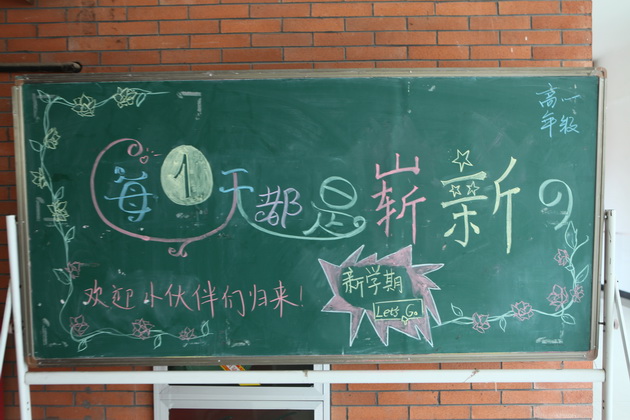 高一
年级
每1天都是崭新の
欢迎小伙伴们归来!
新学期
Let's Go